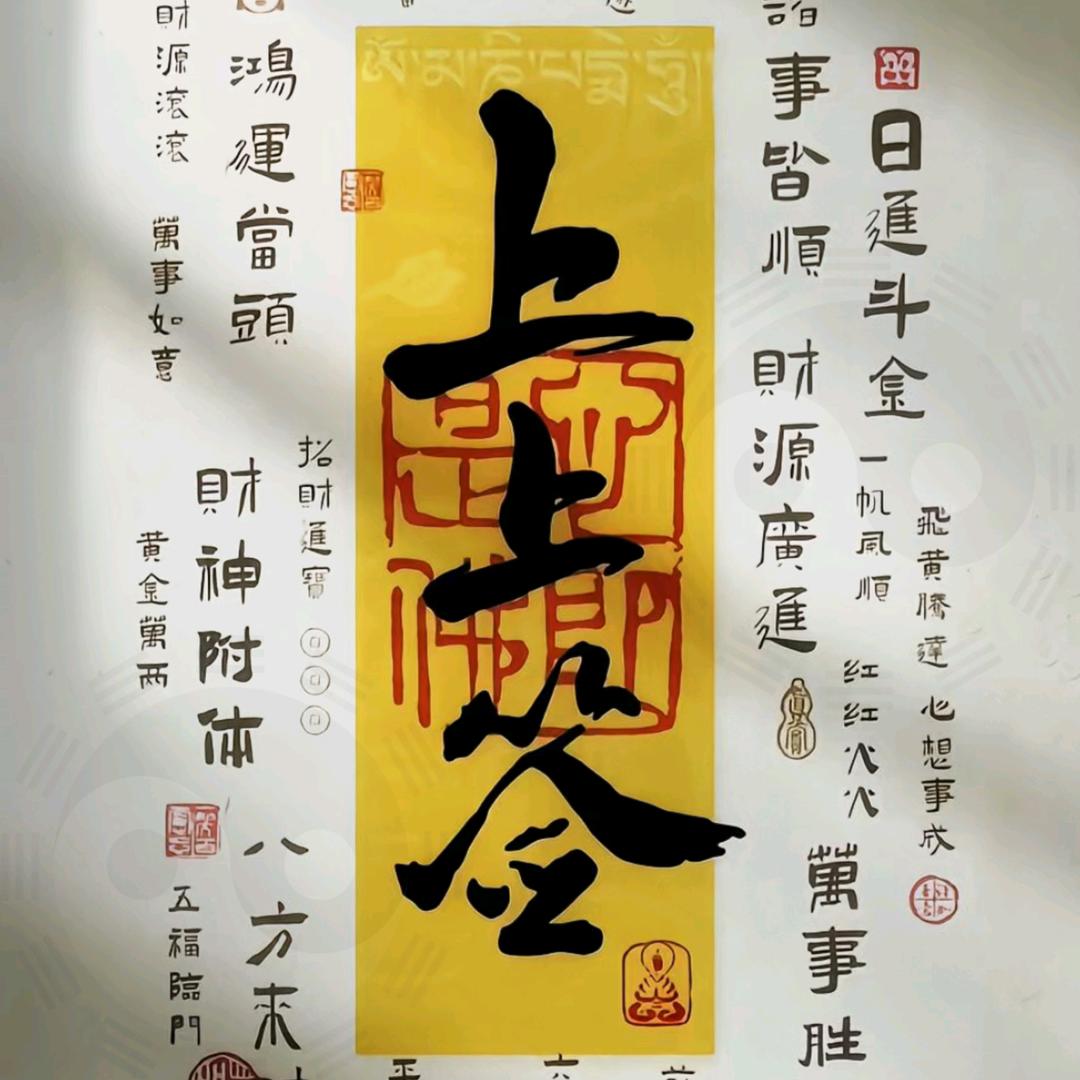 飛黄騰達
心想事成
日進斗金
一帆風順
红红火火
事皆順
財源廣進
萬事胜
ཨོཾ་མ་ཎི་པདྨེ་ཧཱུྃ
上上签
心即是佛
招財進寶
鴻運當頭
財神附体
八方來
財源滾滾
萬事如意
黄金萬两
五福臨門